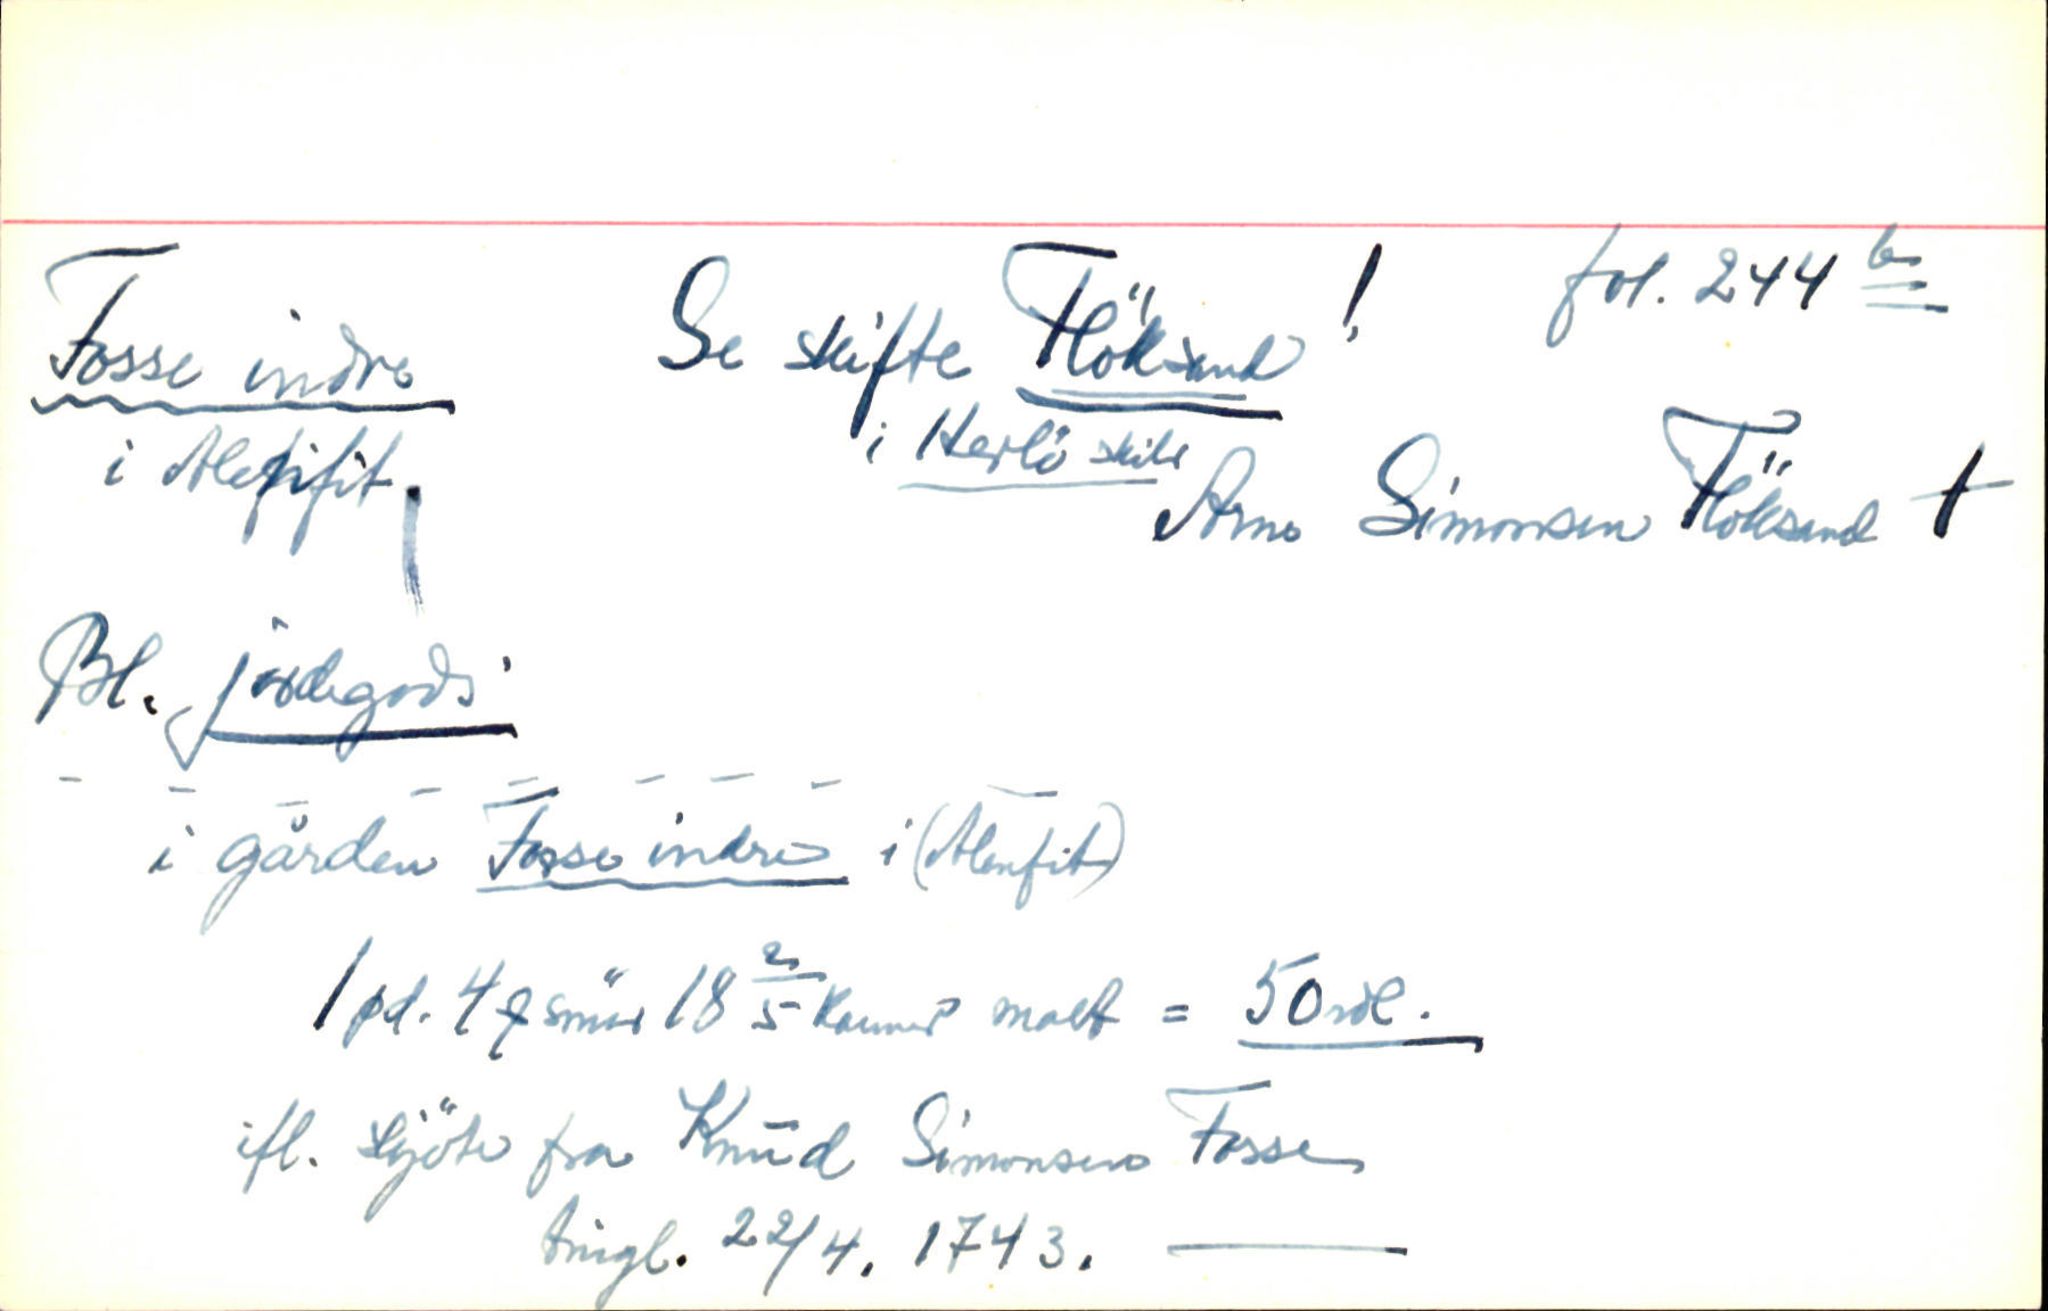 Fosse indre
i Alenfit.
Se skifte Flöksand!
i Herlö skibr
fol. 244 b
Arne Simonsen Flöksand †
Bl. jordegods
i gården Fosse indre i (Alenfit)
1 pd. 4 smör 18 2/5 kanner malt = 50 rdl.
ifl. skjöte fra Knud Simonsen Fosse
tingl. 22/4. 1743.